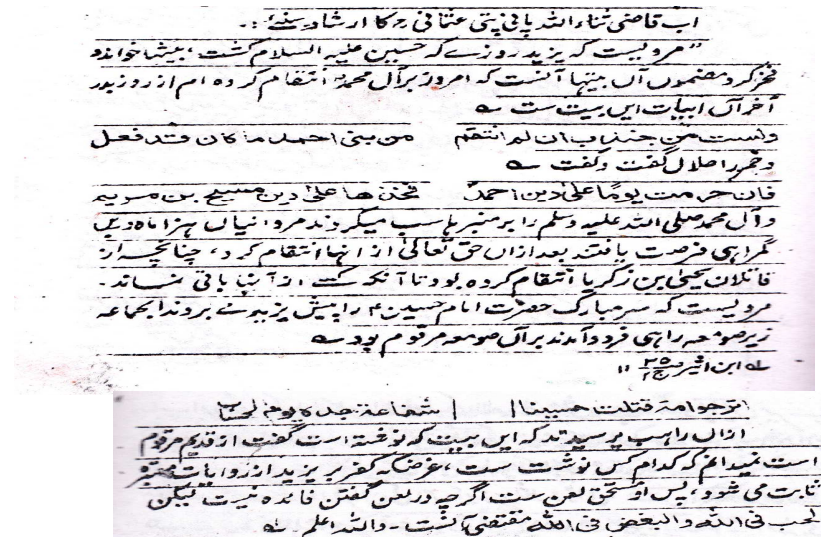 اب قاضی ثناء اللہ پانی پتی عثمانی رح کا ارشاد سنئے :۔
” مرویست کہ یزید روزے کہ حسین علیہ السلام گشت ، بیتہا خواندو
فخز کرو مضمون آں بیتہا آنست کہ امروز برآل محمدؐ انتقام کردہ ام از روز بدر
آخر آں ابیات ایں بیت ست ے
ولست من جندب ان لم انتقم     من بنی احمد ما کان قد فعل
و خمر را حلال گفت و گفت ے
فان حرمت یوما علی دین احمد     فخذها علی دین مسیح بن مریم
و آل محمد صلی اللہ علیہ وسلم را بر منبر ہا سب میکروند مروانیاں ہزار ماہ دریں
گمراہی فرصت یافتند بعد ازاں حق تعالیٰ از انہا انتقام کرد ، چنانچہ از
قاتلان یحییٰ بن زکریا انتقام کردہ بود تا آنکہ کسے از آنہا باقی نماند ۔
مرویست کہ سر مبارک حضرت امام حسین ؑ را پیش یزید مے بروند الجماعہ
زیر صومعہ راہبی فرود آمدند بر آں صومعہ مرقوم بود ے
لہ ابن اثیر ج ۲۵/۲ "
اترجوا مة قتلت حسینا     شفاعة جدہ یوم الحساب
ازاں راہب پرسیدند کہ ایں بیت کہ نوشتہ است گفت از قدیم مرقوم
است نمیدانم کہ کدام کس نوشت ست ، غرضکہ کفر بر یزید از روایات معتبرہ
ثابت می شود ، پس او مستحق لعن ست اگرچہ در لعن گفتن فائدہ نیست لیکن
لحب فی اللہ و البغض فی اللہ مقتضی آنست ۔ واللہ اعلم ۔ ے